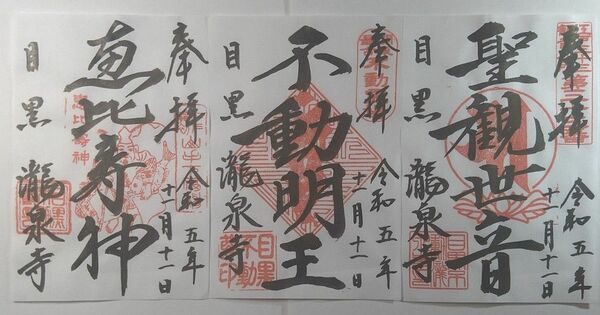 奉拝
令和五年
十一月十一日
聖観世音
目黒
瀧泉寺
奉拝
令和五年
十一月十一日
不動明王
目黒
瀧泉寺
目黒
不動
奉拝
令和五年
十一月十一日
恵比寿神
恵比寿神
目黒
瀧泉寺